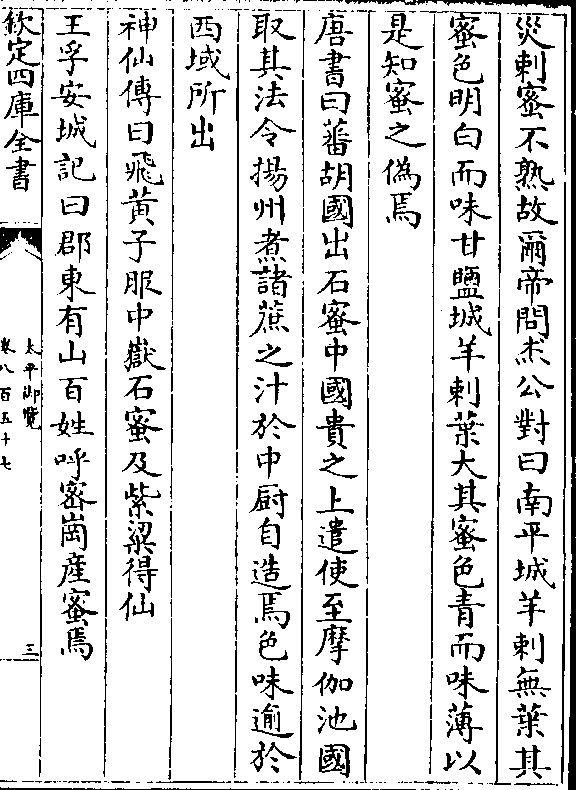 災刺蜜不熟故爾帝問杰公對曰南平城羊刺無葉其
蜜色明白而味甘鹽城羊刺葉大其蜜色青而味薄以
是知蜜之偽焉
唐書曰蕃胡國出石蜜中國貴之上遣使至摩伽池國
取其法令揚州煮諸蔗之汁於中厨自造焉色味逾於
西域所出
神仙傳曰飛黄子服中嶽石蜜及紫粱得仙
王孚安城記曰郡東有山百姓呼密崗産蜜焉
欽定四庫全書
太平御覽
卷八百五十七
三